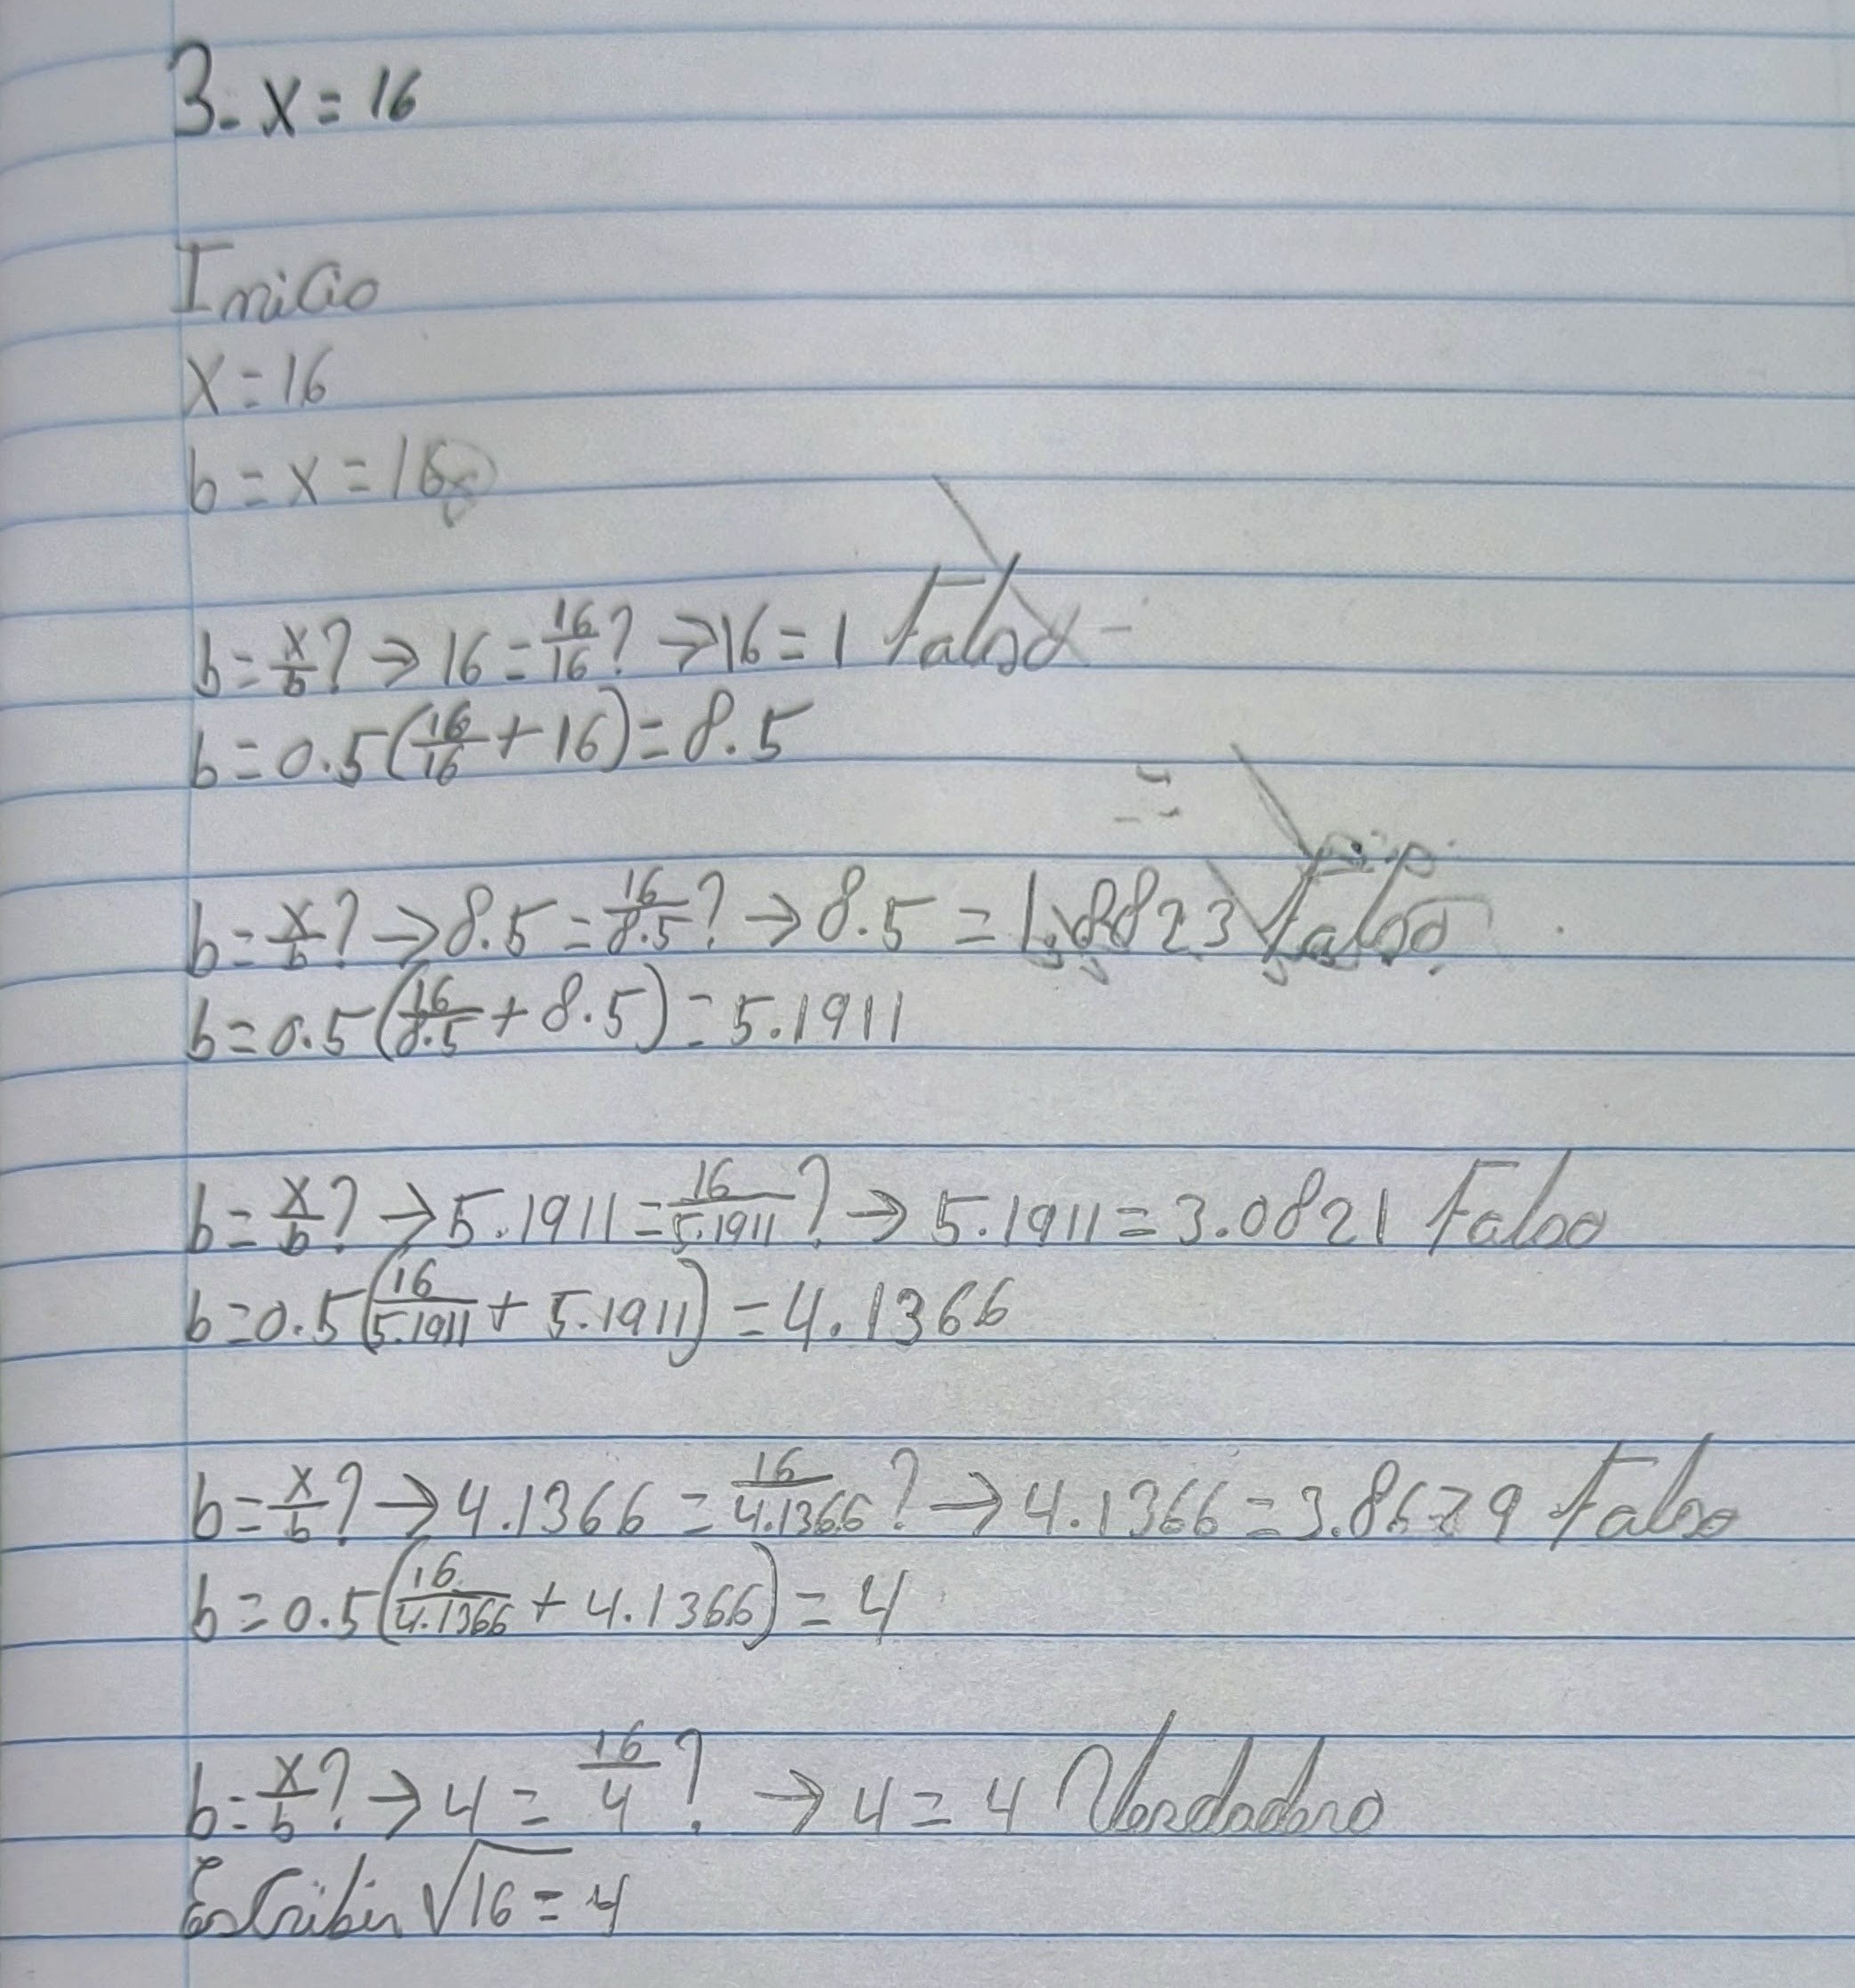 3- x = 16
Inicio
x = 16
b = x = 16
b = x/b? → 16 = 16/16? → 16 = 1 Falso
b = 0.5(16/16 + 16) = 8.5
b = x/b? → 8.5 = 16/8.5? → 8.5 = 1.8823 Falso
b = 0.5(16/8.5 + 8.5) = 5.1911
b = x/b? → 5.1911 = 16/5.1911? → 5.1911 = 3.0821 Falso
b = 0.5(16/5.1911 + 5.1911) = 4.1366
b = x/b? → 4.1366 = 16/4.1366? → 4.1366 = 3.8679 Falso
b = 0.5(16/4.1366 + 4.1366) = 4
b = x/b? → 4 = 16/4? → 4 = 4 Verdadero
Escribir √16 = 4